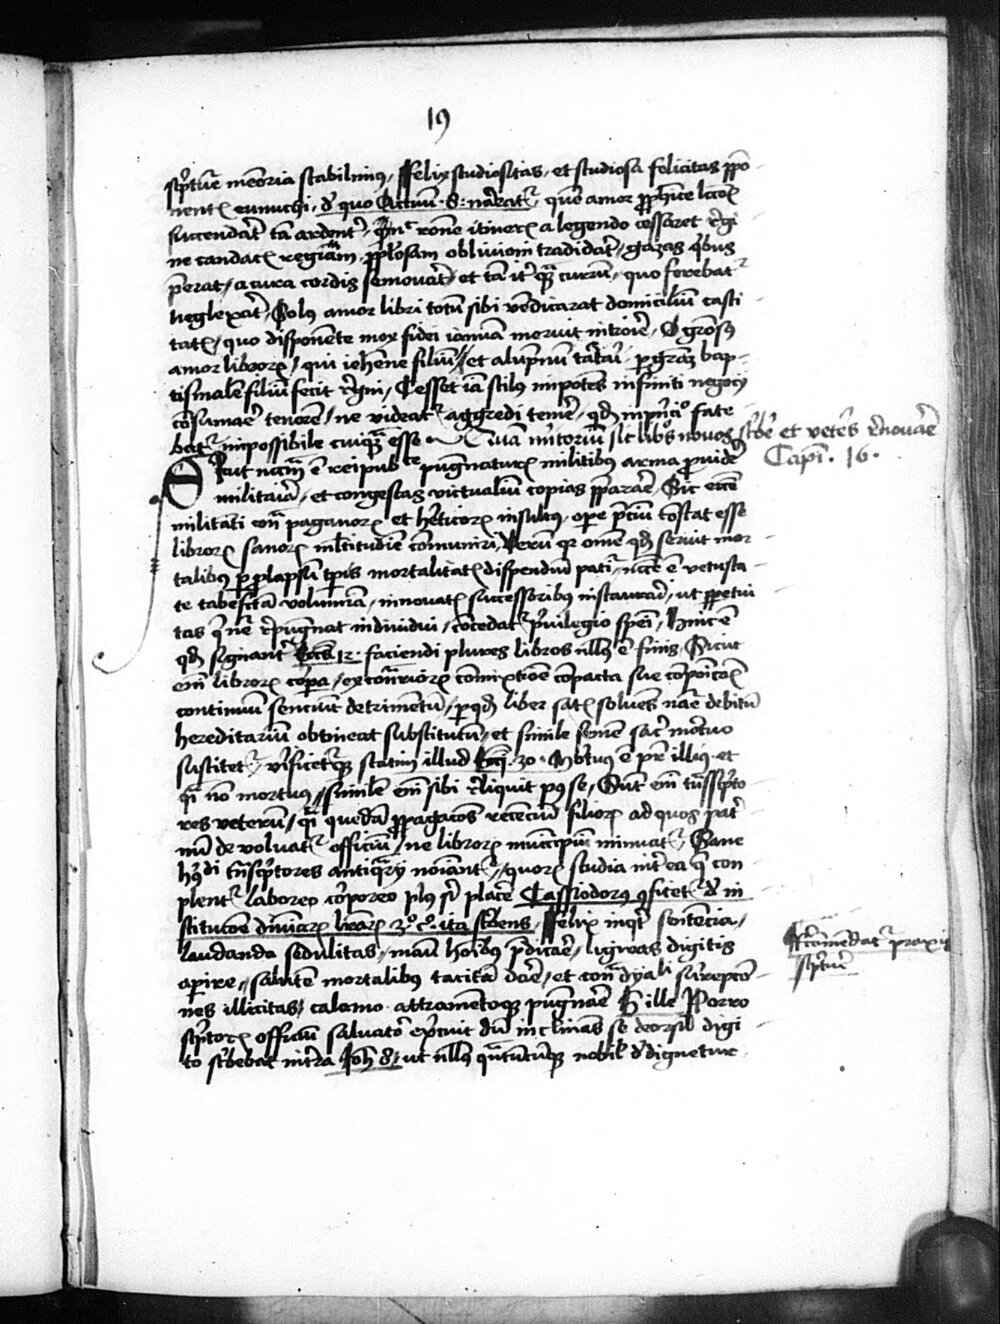 19
scpture memoria stabilimus, Felix studiositas, et studiosa felicitas ppo
nentis eunuchi, de quo Actuum .8. narratur, quem amor prophetice lectionis
succenderat tam ardenter, quod nec ratione itineris a legendo cessaret regi
ne candacis regiam populosam oblivioni tradiderat, gazas quibus
preerat, a cura cordis semoverat, et tam iter quam currum, quo ferebatur
neglexerat, Solus amor libri totum sibi vendicarat domicilium casti
tatis, quo disponente mox fidei ianuam meruit introire, O gratiosus
amor librorum, qui iehenne filium, et alumpnum tartari, per graciam bap
tismalem filium fecit regni, Cesset iam stilus impotens infiniti negocii
consumare tenorem, ne videatur aggredi temere, quod in principio fate
batur impossibile cuiquam esse Quam meritorium sit libros novos scribere et veteres renovare
Capm. 16.
Sicut necessarium est reipublice pugnaturis militibus arma providere
militaria, et congestas victualium copias preparare, Sic ecclesie
militanti contra paganorum et hereticorum insultus, opere precium constat esse
librorum sanorum multitudine communiri, Verum quia omne quod servit mor
talibus per prolapsum temporis mortalitatis dispendium patitur, necesse est vetusta
te tabefacta volumina, innovatis successoribus instaurari, ut perpetui
tas que nature repugnat individui, concedatur privilegio speciei, Hinc est
quod signanter Eccs 12. faciendi plures libros nullus est finis, Sicut
enim librorum corpora, ex contrariorum commixtione compacta sue compositionis
continuum senciunt detrimentum, per quod liber satis solvens nature debitum
hereditarium obtineat substitutum, et simile semen sacre mortuo
sustitetur, verificeturque statim illud Eccl. 30. Mortuus est pater illius et
quasi non mortuus, similem enim sibi reliquit post se, Sunt enim transcripto
res veterum, quasi quedam propagatores recencium filiorum ad quos patr
num devolvatur officium, ne librorum municipium minuatur, Sane
huiusmodi transcriptores antiquarii nominantur, quorum studia inter ea que con
plentur labore corporeo plus sibi placere Cassiodorus confitetur de in
stitutione divinarum literarum 30° c° ita scribens, Felix inquit sentencia,
laudanda sedulitas, manu hominibus predicare, ligwas digitis
aperire, salutem mortalibus tacitam dare, et contra dyaboli surrepcio
nes illicitas, calamo attramentoque pugnare Hec ille Porro
scriptoris officium salvator exercuit dum inclinans se deorsum digi
to scribebat in terra Joh 8, ut nullus quantumcumque nobilis dedignetur
Recommendatur praxis
scripture